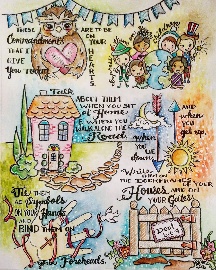 THESE
Commandments
THAT I
GIVE
YOU today
ARE TO BE
ON
YOUR
HEARTS.
Talk
ABOUT THEM
WHEN YOU SIT
at Home
& WHEN YOU
WALK ALONG THE
Road,
when
you
lie
down,
AND
when
you
get up.
Tie THEM
AS Symbols
ON YOUR Hands
and
BIND THEM ON
your Foreheads.
Write
them on
THE DOORFRAMES OF YOUR
Houses AND ON
YOUR Gates.